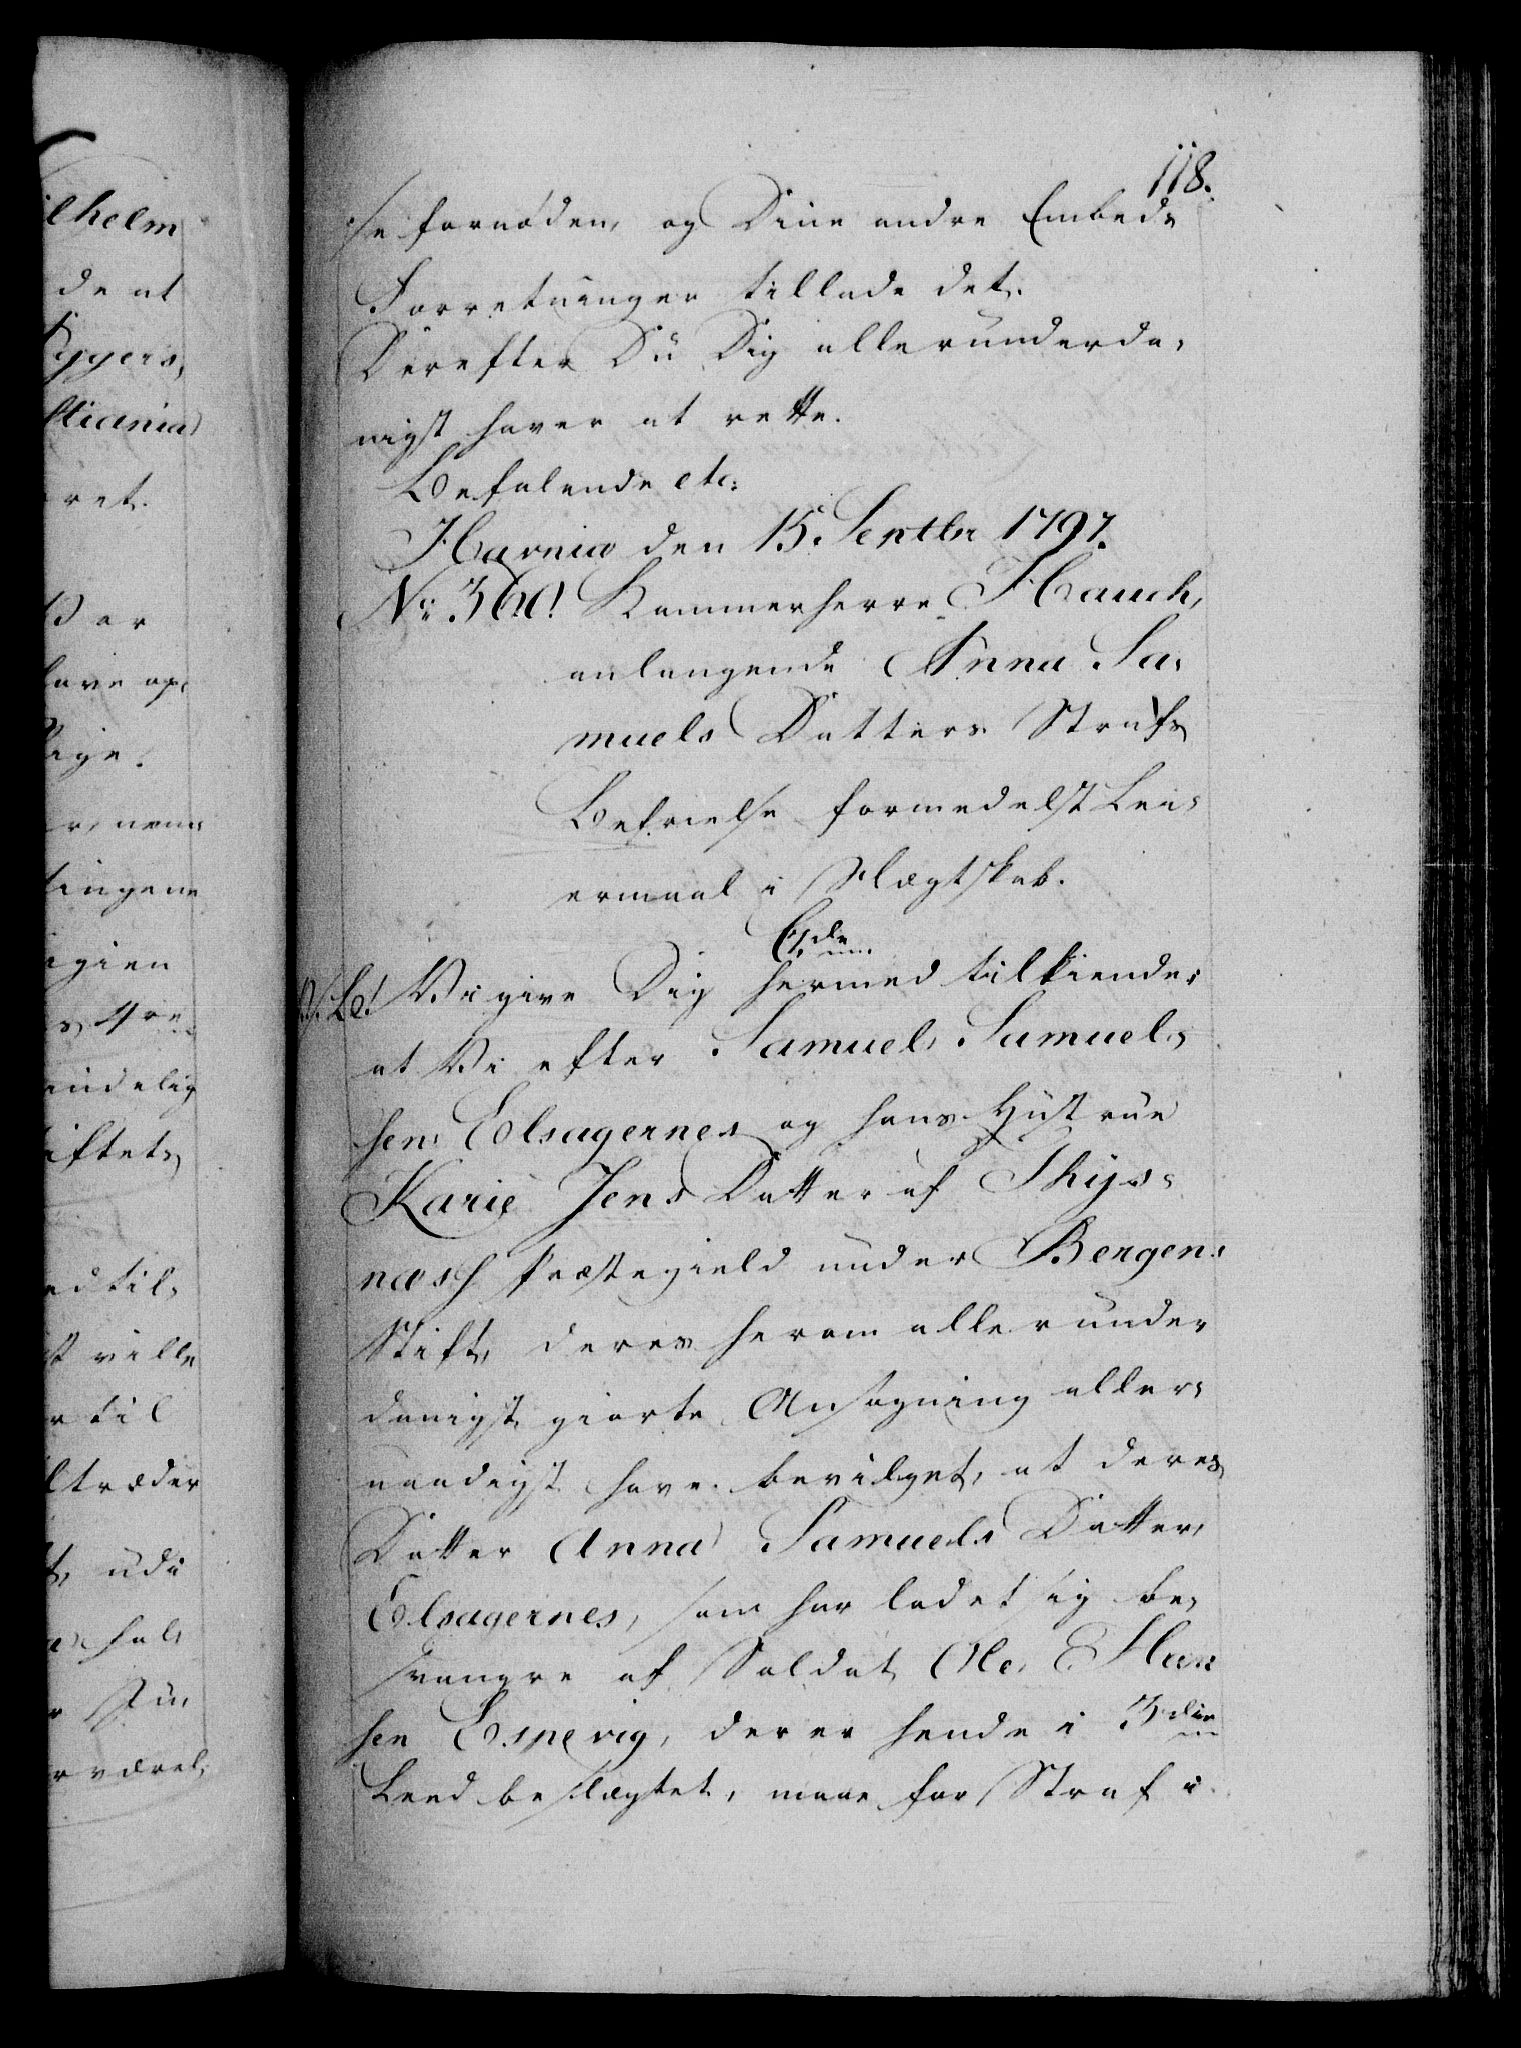 118.
se fornøden, og Dine andre Embeds
Forretninger tillade det.
Derefter Du Dig allerunderda-
nigst haver at rette.
Befalende etc:
Havnia den 15. Septbr 1797.
No: 360! Kammerherre Hauch,
anlangende Anna Sa-
muels Datters Strafs
Befrielse formedelst Lei-
ermaal i Slægtskab.
C. de
Vi give Dig hermed tilkiende:
at Vi efter Samuel Samuels
sen Elsagernes og hans Hustrue
Karie Jens Datter af Thys-
næss Præstegield under Bergens
Stift, deres herom allerunder
danigst giorte Ansøgning aller-
naadigst have bevilget, at deres
Datter Anna Samuels Datter,
Elsagernes, som har ladet sig be-
svangre af Soldat Ole Han
sen Espevig, der er hende i 3die
Leed beslægtet, maae for Straf i
ilhelm
de at
Eggers,
stiania
ret.
Vor
have op-
ige.
r, nem-
tingene
igien
indelig
iftets
ed til-
st ville
r til
ltræder
t, udi